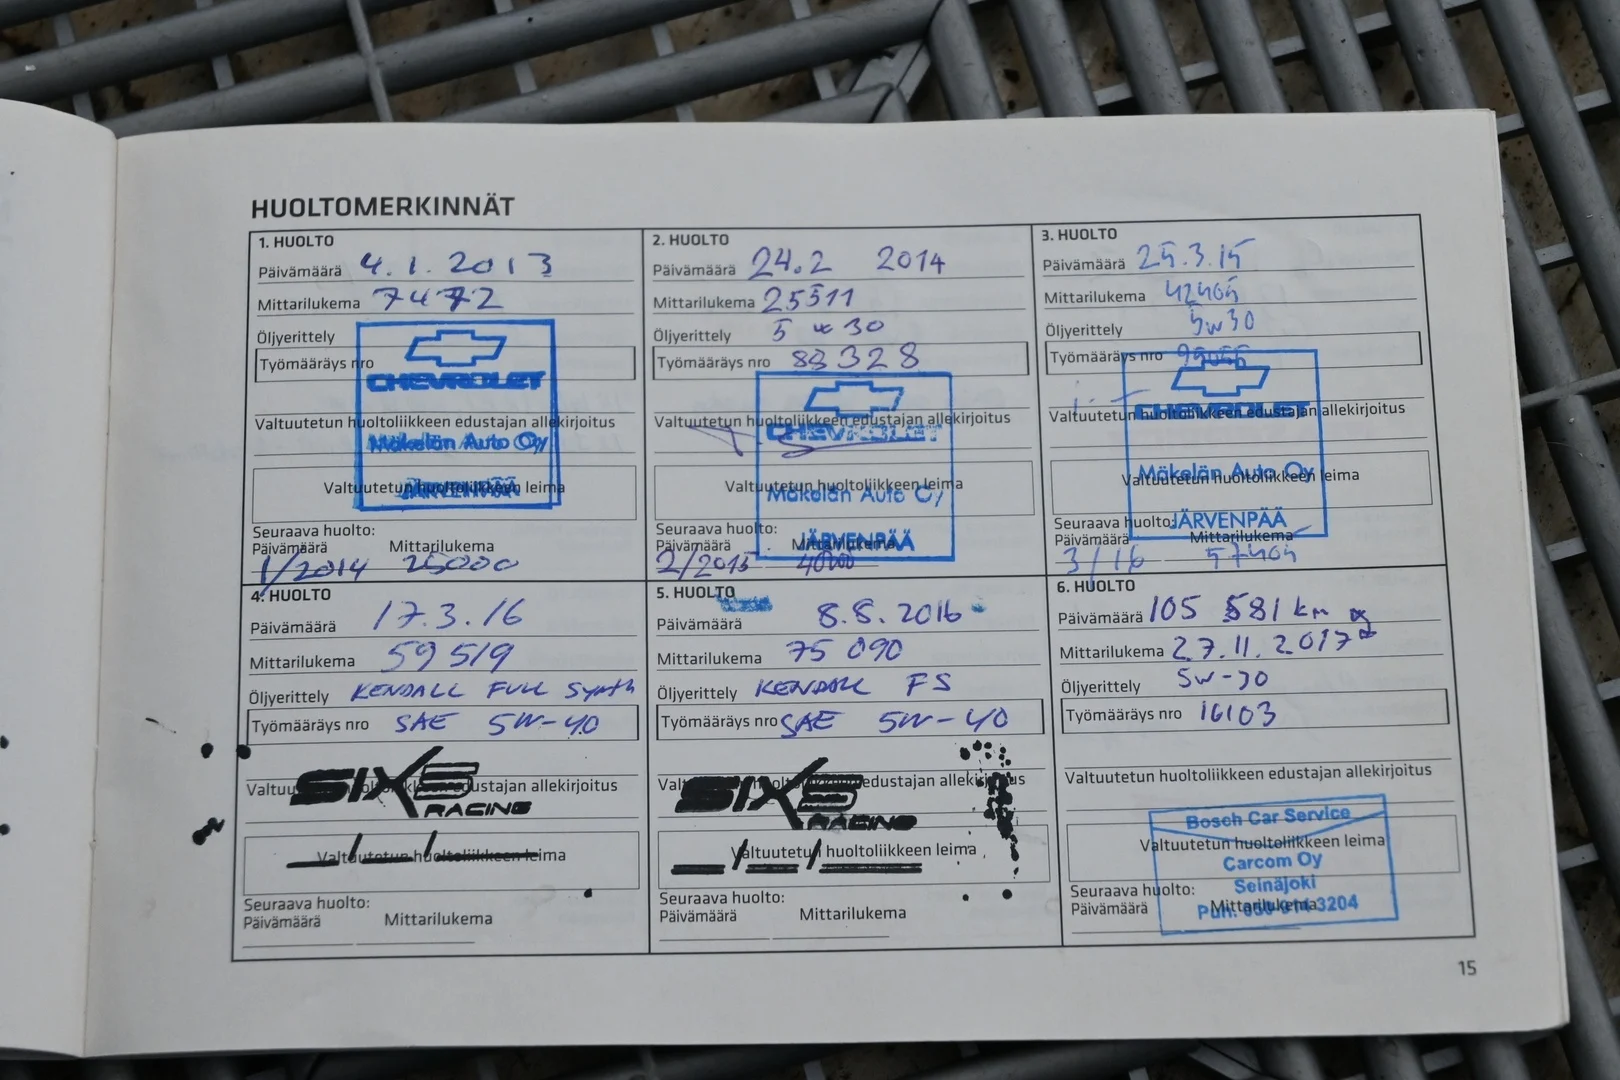 HUOLTOMERKINNÄT
1. HUOLTO
Päivämäärä 4.1.2013
Mittarilukema 7472
Öljyerittely
Työmääräys nro
CHEVROLET
Valtuutetun huoltoliikkeen edustajan allekirjoitus
Mäkelän Auto Oy
Valtuutetun huoltoliikkeen leima
JÄRVENPÄÄ
Seuraava huolto:
Päivämäärä Mittarilukema
1/2014 25000
2. HUOLTO
Päivämäärä 24.2 2014
Mittarilukema 25511
Öljyerittely 5w30
Työmääräys nro 88328
Valtuutetun huoltoliikkeen edustajan allekirjoitus
CHEVROLET
Valtuutetun huoltoliikkeen leima
Mäkelän Auto Oy
Seuraava huolto:
JÄRVENPÄÄ
Päivämäärä Mittarilukema
2/2015
3. HUOLTO
Päivämäärä 25.3.15
Mittarilukema 42405
Öljyerittely 5w30
Työmääräys nro
CHEVROLET
Valtuutetun huoltoliikkeen edustajan allekirjoitus
Mäkelän Auto Oy
Valtuutetun huoltoliikkeen leima
Seuraava huolto:
JÄRVENPÄÄ
Päivämäärä Mittarilukema
3/16 57405
4. HUOLTO
Päivämäärä 17.3.16
Mittarilukema 59519
Öljyerittely KENDALL FULL Synth
Työmääräys nro SAE 5W-40
Valtuutetun huoltoliikkeen edustajan allekirjoitus
SIXS
RACING
Valtuutetun huoltoliikkeen leima
Seuraava huolto:
Päivämäärä Mittarilukema
5. HUOLTO
Päivämäärä 8.8.2016
Mittarilukema 75 090
Öljyerittely KENDALL FS
Työmääräys nro SAE 5W-40
Valtuutetun huoltoliikkeen edustajan allekirjoitus
SIXS
RACING
Valtuutetun huoltoliikkeen leima
Seuraava huolto:
Päivämäärä Mittarilukema
6. HUOLTO
Päivämäärä 105 581 km
Mittarilukema 27.11.2017
Öljyerittely 5W-30
Työmääräys nro 16103
Valtuutetun huoltoliikkeen edustajan allekirjoitus
Bosch Car Service
Valtuutetun huoltoliikkeen leima
Carcom Oy
Seinäjoki
Seuraava huolto:
Puh. 3204
Päivämäärä Mittarilukema
15